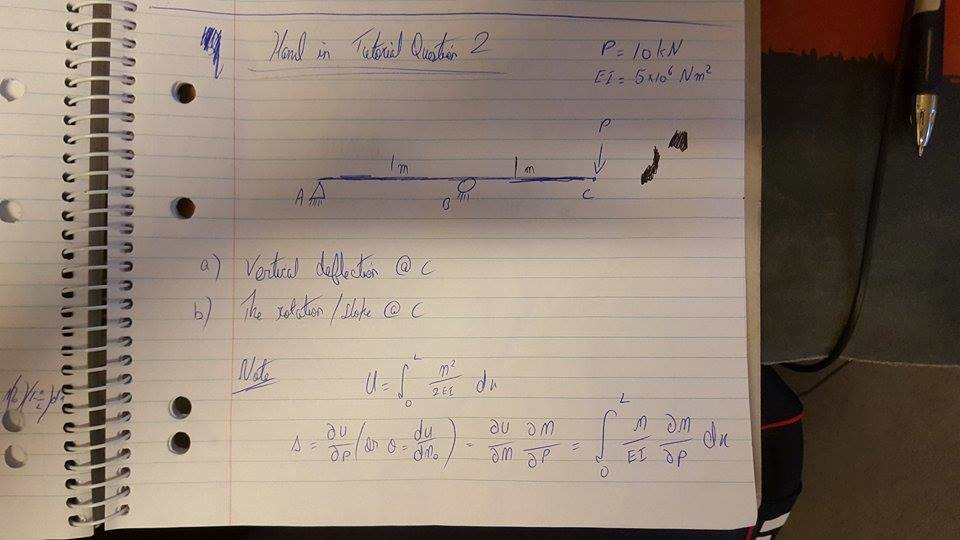 Hand in Tutorial Question 2
P = 10 kN
EI = 5×10⁶ Nm²
P
1m 1m
A B C
a) Vertical deflection @ C
b) The rotation/slope @ C
Note
U = ∫₀ᴸ M²/2EI dx
Δ = ∂U/∂P (or θ = du/dm₀) = ∂U/∂M ∂M/∂P = ∫₀ᴸ M/EI ∂M/∂P dx